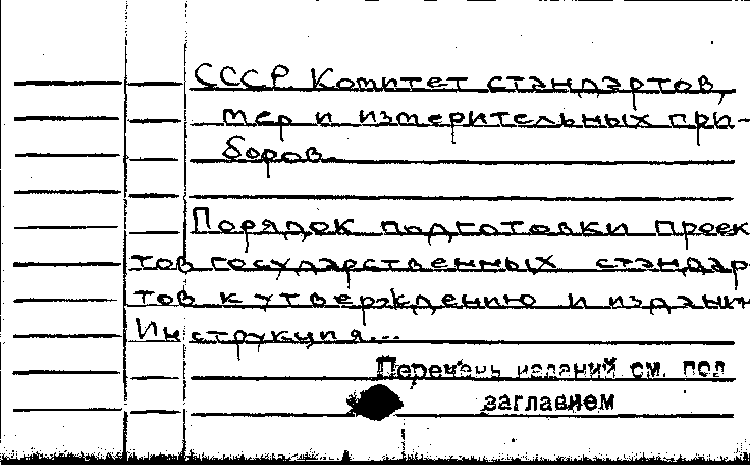 СССР. Комитет стандартов,
мер и измерительных при-
боров.
Порядок подготовки проек
тов государственных стандар-
тов к утверждению и издани
Инструкция...
Перечень изданий см. под
заглавием